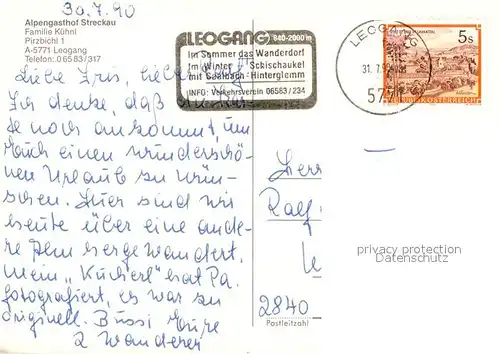 30.7.90
Alpengasthof Streckau
Familie Kühnl
Pirzbichl 1
A-5771 Leogang
Telefon: 0 65 83/317
LEOGANG 840-2000 m
Im Sommer das Wanderdorf
Im Winter Schischaukel
mit Saalbach-Hinterglemm
INFO: Verkehrsverein 06583/234
LEOGANG
31.7.9
577
5s
REPUBLIK ÖSTERREICH
Liebe Iris, lieber
Ich denke, daß
noch ankommt, um
Euch einen wunderschö-
nen Urlaub zu wün-
schen. Hier sind wir
heute über eine ande-
re Alm hergewandert.
Mein "Kucherl" hat Pa.
fotografiert, es war zu
originell. Bussi Eure
2 Wanderer
Herr
Ralf
2840
Postleitzahl
privacy protection
Datenschutz